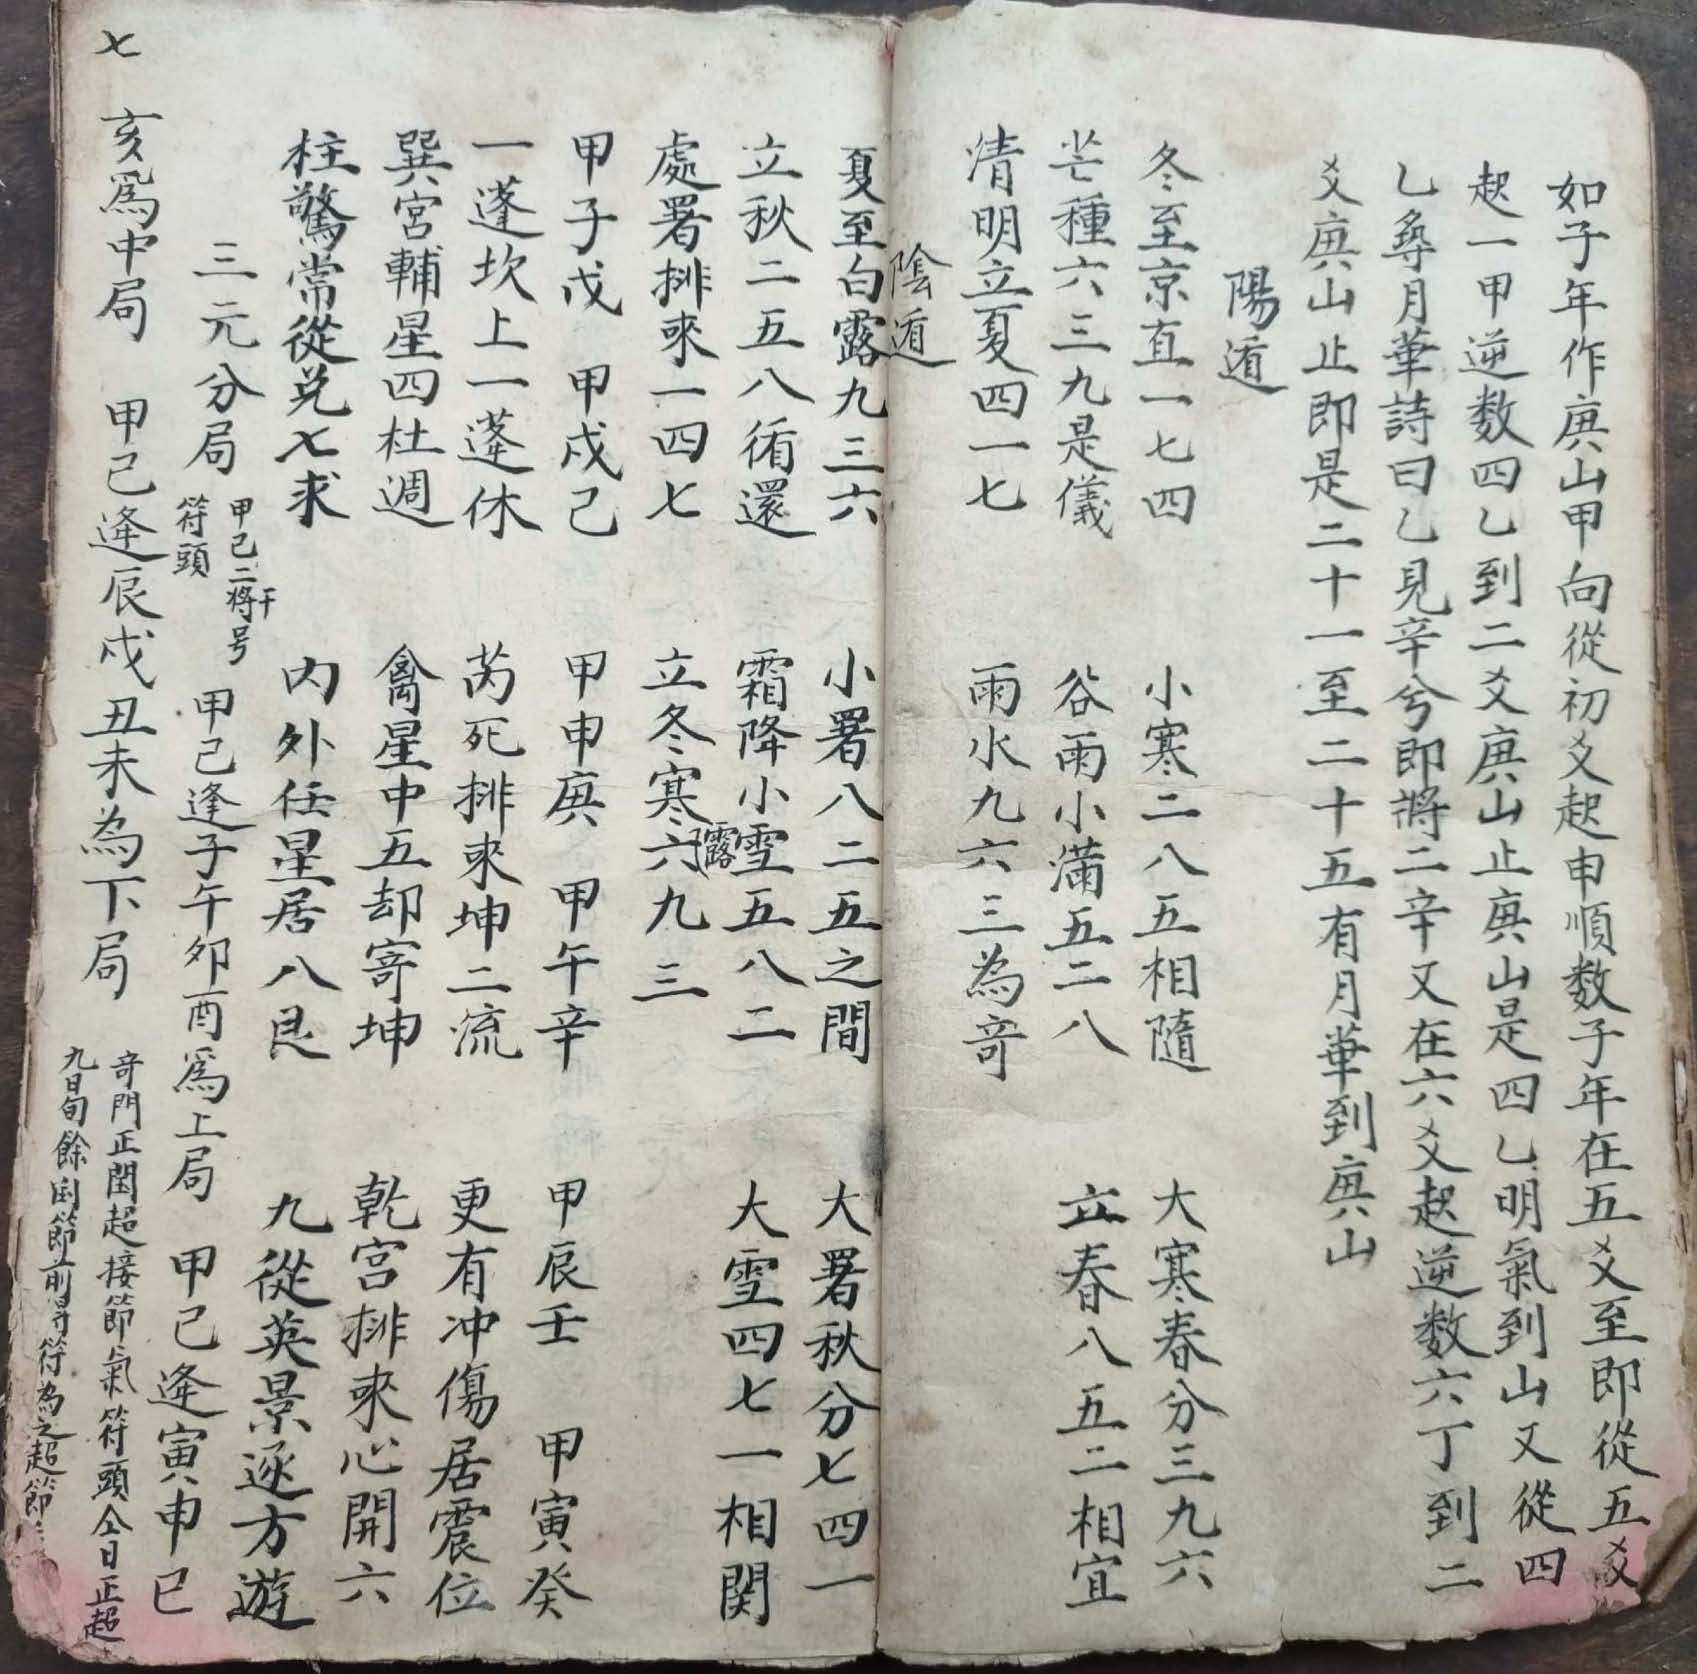 如子年作庚山甲向從初爻起申順数子年在五爻至即從五爻
起一甲逆数四乙到二爻庚山止庚山是四乙明氣到山又從四
乙尋月華詩曰乙見辛兮即將二辛又在六爻起逆数六丁到二
爻庚山止即是二十一至二十五有月華到庚山
陽遁
冬至京直一七四 小寒二八五相隨 大寒春分三九六
芒種六三九是儀 谷雨小滿五二八 立春八五二相宜
清明立夏四一七 雨水九六三為奇
陰遁
夏至白露九三六 小署八二五之間 大署秋分七四一
立秋二五八循還 霜降小雪五八二 大雪四七一相関
處署排來一四七 立冬寒露六九三
甲子戊 甲戌己 甲申庚 甲午辛 甲辰壬 甲寅癸
一蓬坎上一蓬休 芮死排來坤二流 更有冲傷居震位
巽宮輔星四杜週 禽星中五却寄坤 乾宮排來心開六
柱驚常從兌七求 内外任星居八艮 九從英景逐方遊
三元分局 甲己二干將号符頭 甲己逢子午卯酉為上局 甲己逢寅申巳
亥為中局 甲己逢辰戌丑未為下局 奇門正閏超接節氣符頭仝日正超
九日旬餘閏節前得符為之超節
七